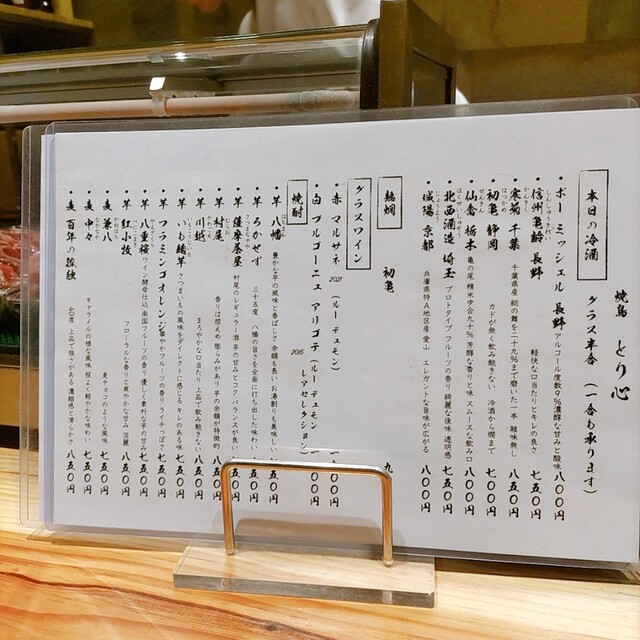 焼鳥 とり心
本日の冷酒 グラス半合(一合も承ります)
・ボー ミッシェル 長野 アルコール度数9%濃醇な甘みと酸味 八〇〇円
・信州亀齢 長野 軽快な口当たりとキレの良さ 七五〇円
しんしゅうきれい
・寒菊 千葉 千葉県産 総の舞を二十九%まで磨いた一本 雑味無し 八五〇円
・初亀 静岡 カドが無く飲み飽きない 冷酒から燗まで 七〇〇円
はつかめ
・仙禽 栃木 亀の尾 精米歩合九十% 芳醇な香りと味 スムースな飲み口 八〇〇円
せんきん
・北西酒造 埼玉 プロトタイプ フルーツの香り 綺麗な後味 透明感 八〇〇円
・城陽 京都 兵庫県特A地区産 愛山 エレガントな旨味が広がる 八〇〇円
じょうよう
熱燗 初亀 九
グラスワイン
・赤 マルサネ 2021 (ルー デュモン)
・白 ブルゴーニュ アリゴテ 2015 (ルー デュモン レアセレクション) 〇〇円
焼酎
・芋 八幡 豊かな芋の風味と香ばしさ 余韻も長い お湯割りも美味しい 八五〇円
・芋 ろかせず 三十五度 八幡の強さを全面に打ち出した味わい 八五〇円
・芋 薩摩茶屋 村尾のレギュラー酒 芋の甘みとコク バランスが良い 八五〇円
さつまちゃや
・芋 村尾 香りは控えめ 膨らみがあり芋の余韻が特徴的 八五〇円
むらお
・芋 川越 まろやかな口当たり 上品で飲み飽きない 八五〇円
・芋 いも麹芋 さつまいもの風味をダイレクトに感じる キレのある味 八五〇円
・芋 フラミンゴオレンジ 華やかフルーツの香り ライチっぽさ 八五〇円
・芋 八重桜 ワイン酵母仕込 南国フルーツの香り 優しく素朴な芋の甘み 七五〇円
・芋 紅小牧 フローラルな香りと爽やかな甘み 淡麗 八五〇円
・麦 兼八 麦チョコのような風味 八五〇円
かねはち
・麦 中々 キャラメルの様な風味 程よく軽やかな味わい 七五〇円
・麦 百年の孤独 上品で強さがある 濃縮感と滑らかさ 八五〇円